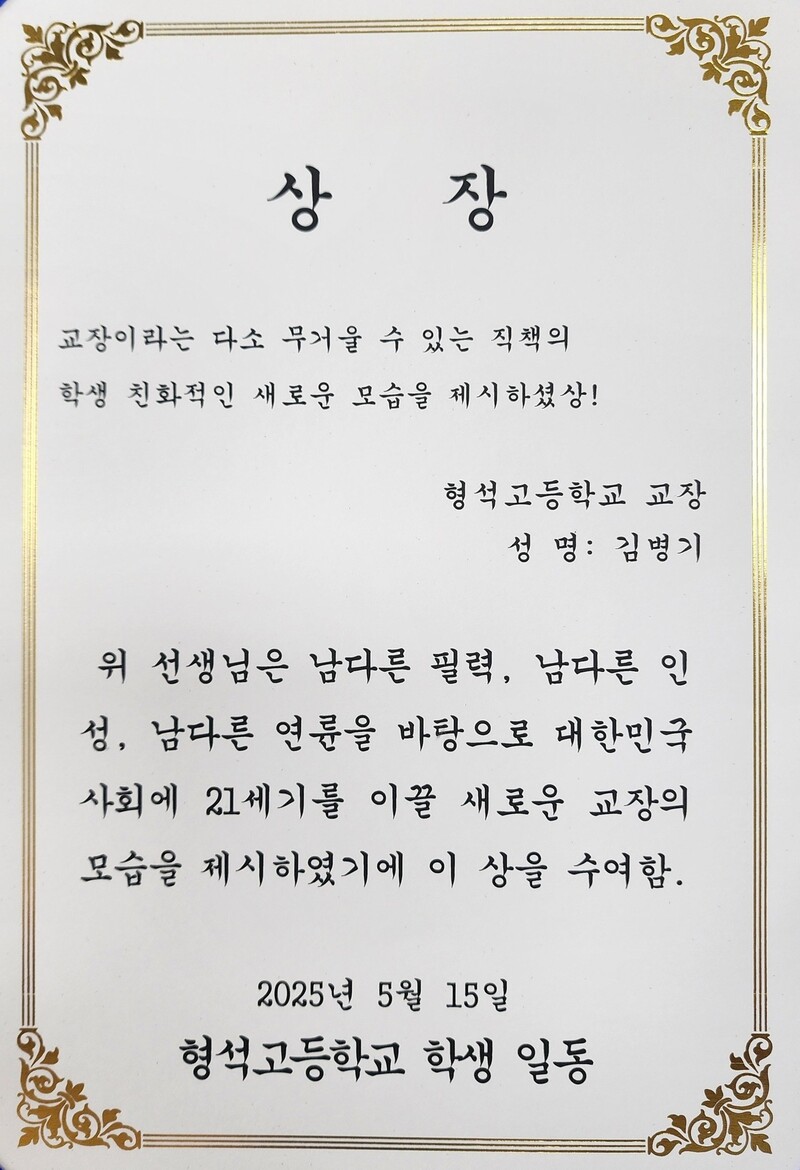 상 장
교장이라는 다소 무거울 수 있는 직책의
학생 친화적인 새로운 모습을 제시하셨상!
형석고등학교 교장
성 명: 김병기
위 선생님은 남다른 필력, 남다른 인
성, 남다른 연륜을 바탕으로 대한민국
사회에 21세기를 이끌 새로운 교장의
모습을 제시하였기에 이 상을 수여함.
2025년 5월 15일
형석고등학교 학생 일동